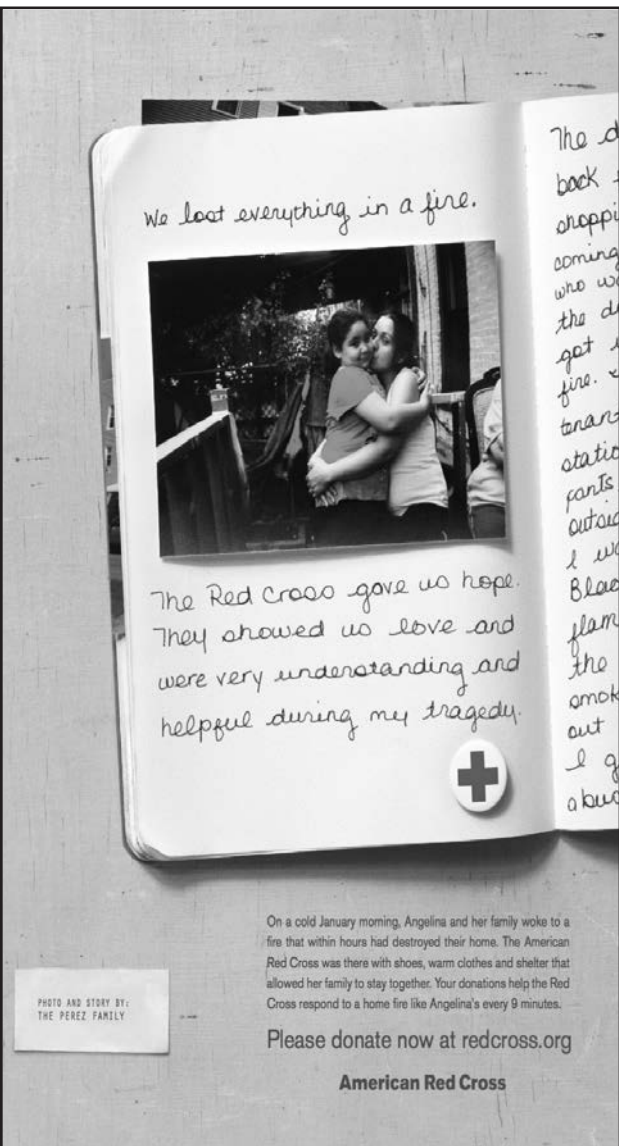 We lost everything in a fire.
The Red Cross gave us hope.
They showed us love and
were very understanding and
helpful during my tragedy.
The d
back
shoppi
coming
who wo
the d
got
fire.
tenan
static
pants
outsid
I wa
Blac
flam
the
smok
out
I g
abuo
PHOTO AND STORY BY:
THE PEREZ FAMILY
On a cold January morning, Angelina and her family woke to a
fire that within hours had destroyed their home. The American
Red Cross was there with shoes, warm clothes and shelter that
allowed her family to stay together. Your donations help the Red
Cross respond to a home fire like Angelina's every 9 minutes.
Please donate now at redcross.org
American Red Cross